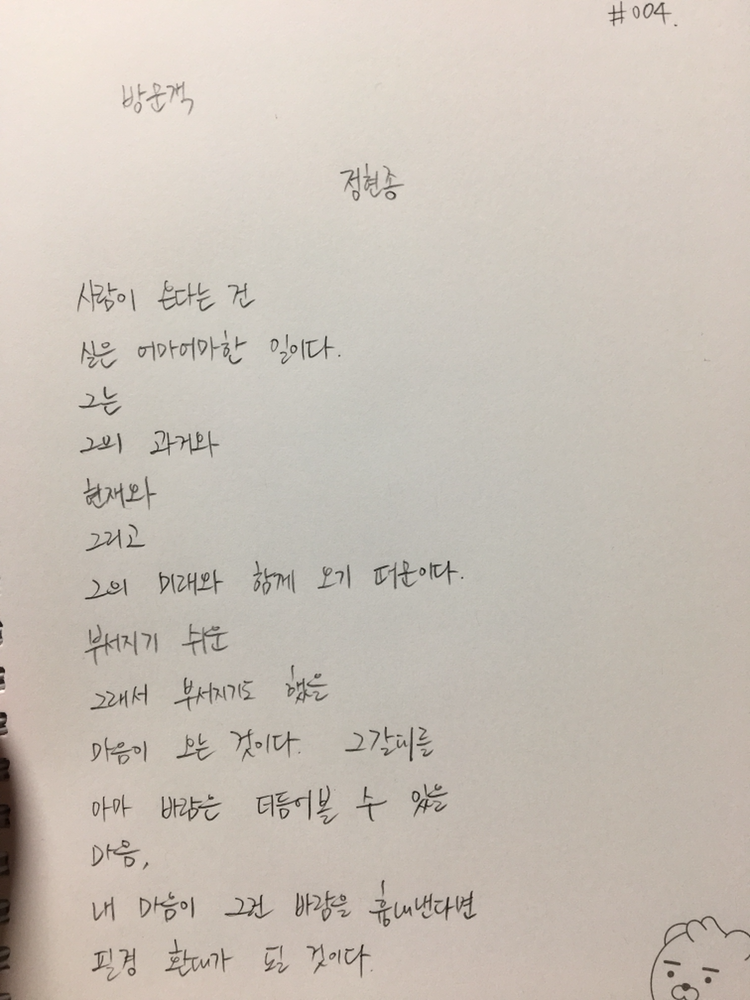 #004.
방문객
정현종
사람이 온다는 건
실은 어마어마한 일이다.
그는
그의 과거와
현재와
그리고
그의 미래와 함께 오기 때문이다.
부서지기 쉬운
그래서 부서지기도 했을
마음이 오는 것이다. 그갈피를
아마 바람은 더듬어볼 수 있을
마음,
내 마음이 그런 바람을 흉내낸다면
필경 환대가 될 것이다.